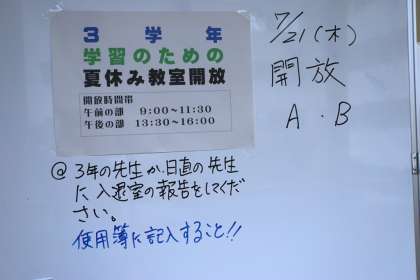 3学年
学習のための
夏休み教室開放
開放時間帯
午前の部 9:00~11:30
午後の部 13:30~16:00
7/21(木)
開放
A・B
@ 3年の先生か日直の先生
に入退室の報告をしてくだ
さい。
使用簿に記入すること!!